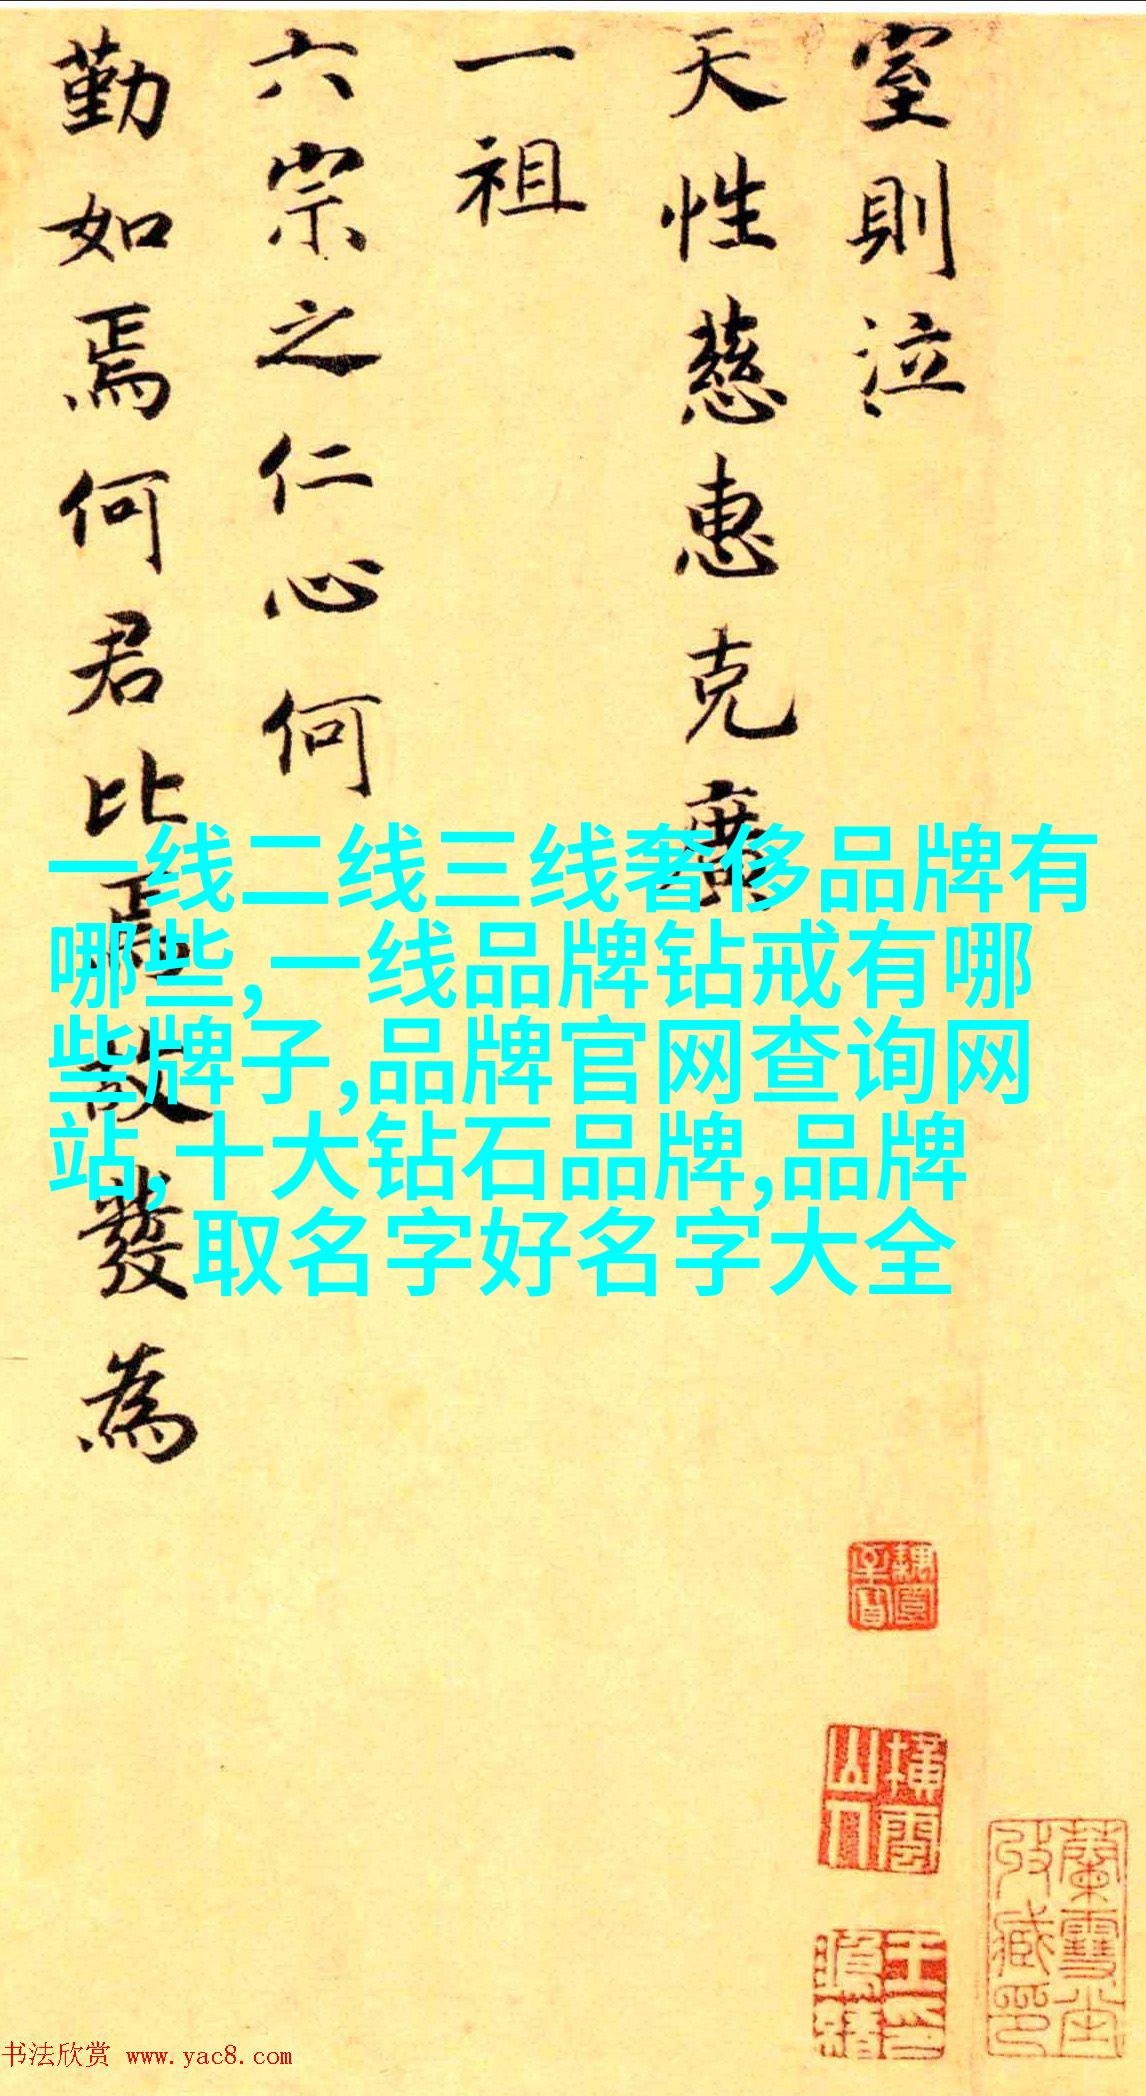 室則泣
天性慈惠克廣
一祖
六宗之仁心何
勤如焉何君比焉故發為
一线二线三线奢侈品牌有
哪些,一线品牌钻戒有哪
些牌子,品牌官网查询网
站,十大钻石品牌,品牌
取名字好名字大全
横雲山人
蘭雪堂收藏印
书法欣赏 www.yac8.com